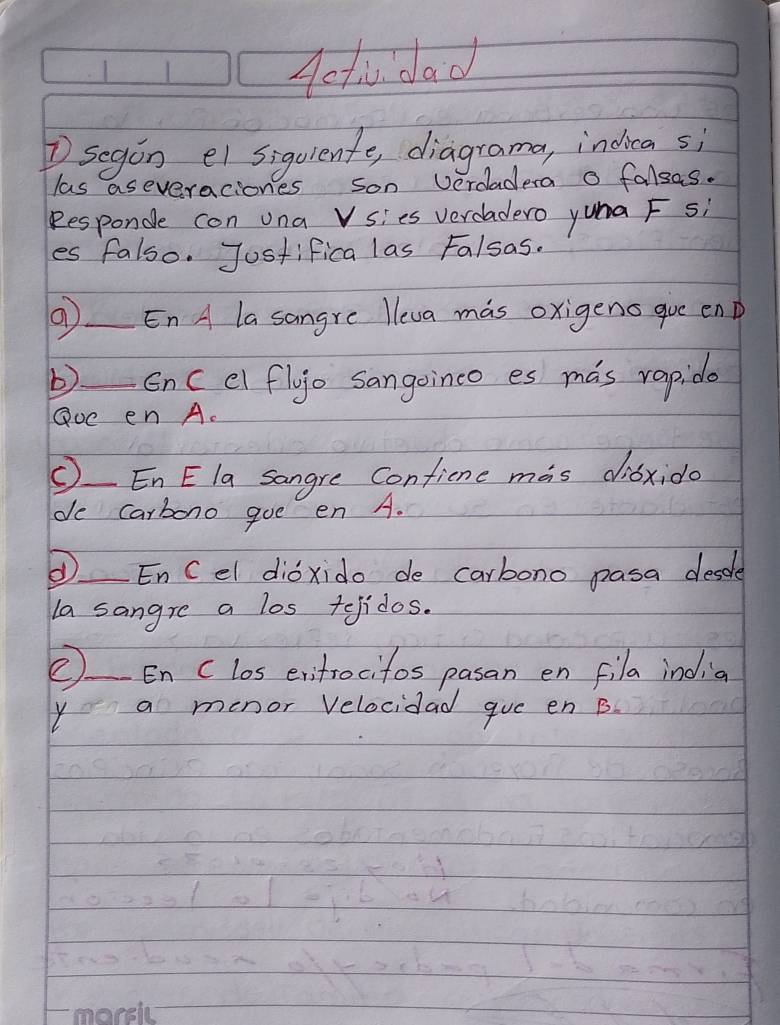 Actividad
1) según el siguiente, diagrama, indica si
las aseveraciones son verdadera o falsas.
Responde con una V si es verdadero y una F si
es falso. Justifica las Falsas.
a) ___ En A la sangre lleva más oxigeno que en D
b) ___ En C el flujo sangoineo es más rapido
Que en A.
c) ___ En E la sangre Contiene más dióxido
de carbono que en A.
d) ___ En C el dióxido de carbono pasa desde
la sangre a los tejidos.
e) ___ En C los eritrocitos pasan en fila india
y a menor Velocidad que en B.
marfil